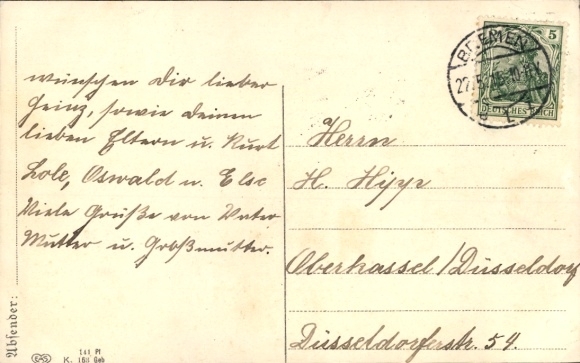 wünschen Dir lieber
Heinz, sowie Deinen
lieben Eltern u. Kurt
Lole, Oswald u. Else
Viele Grüße von Vater
Mutter u. Großmutter.
Absender:
141 Pf
K. 168 Geb
BREMEN
5
DEUTSCHES REICH
Herrn
H. Hipp
Oberkassel/Düsseldorf
Düsseldorferstr. 54.